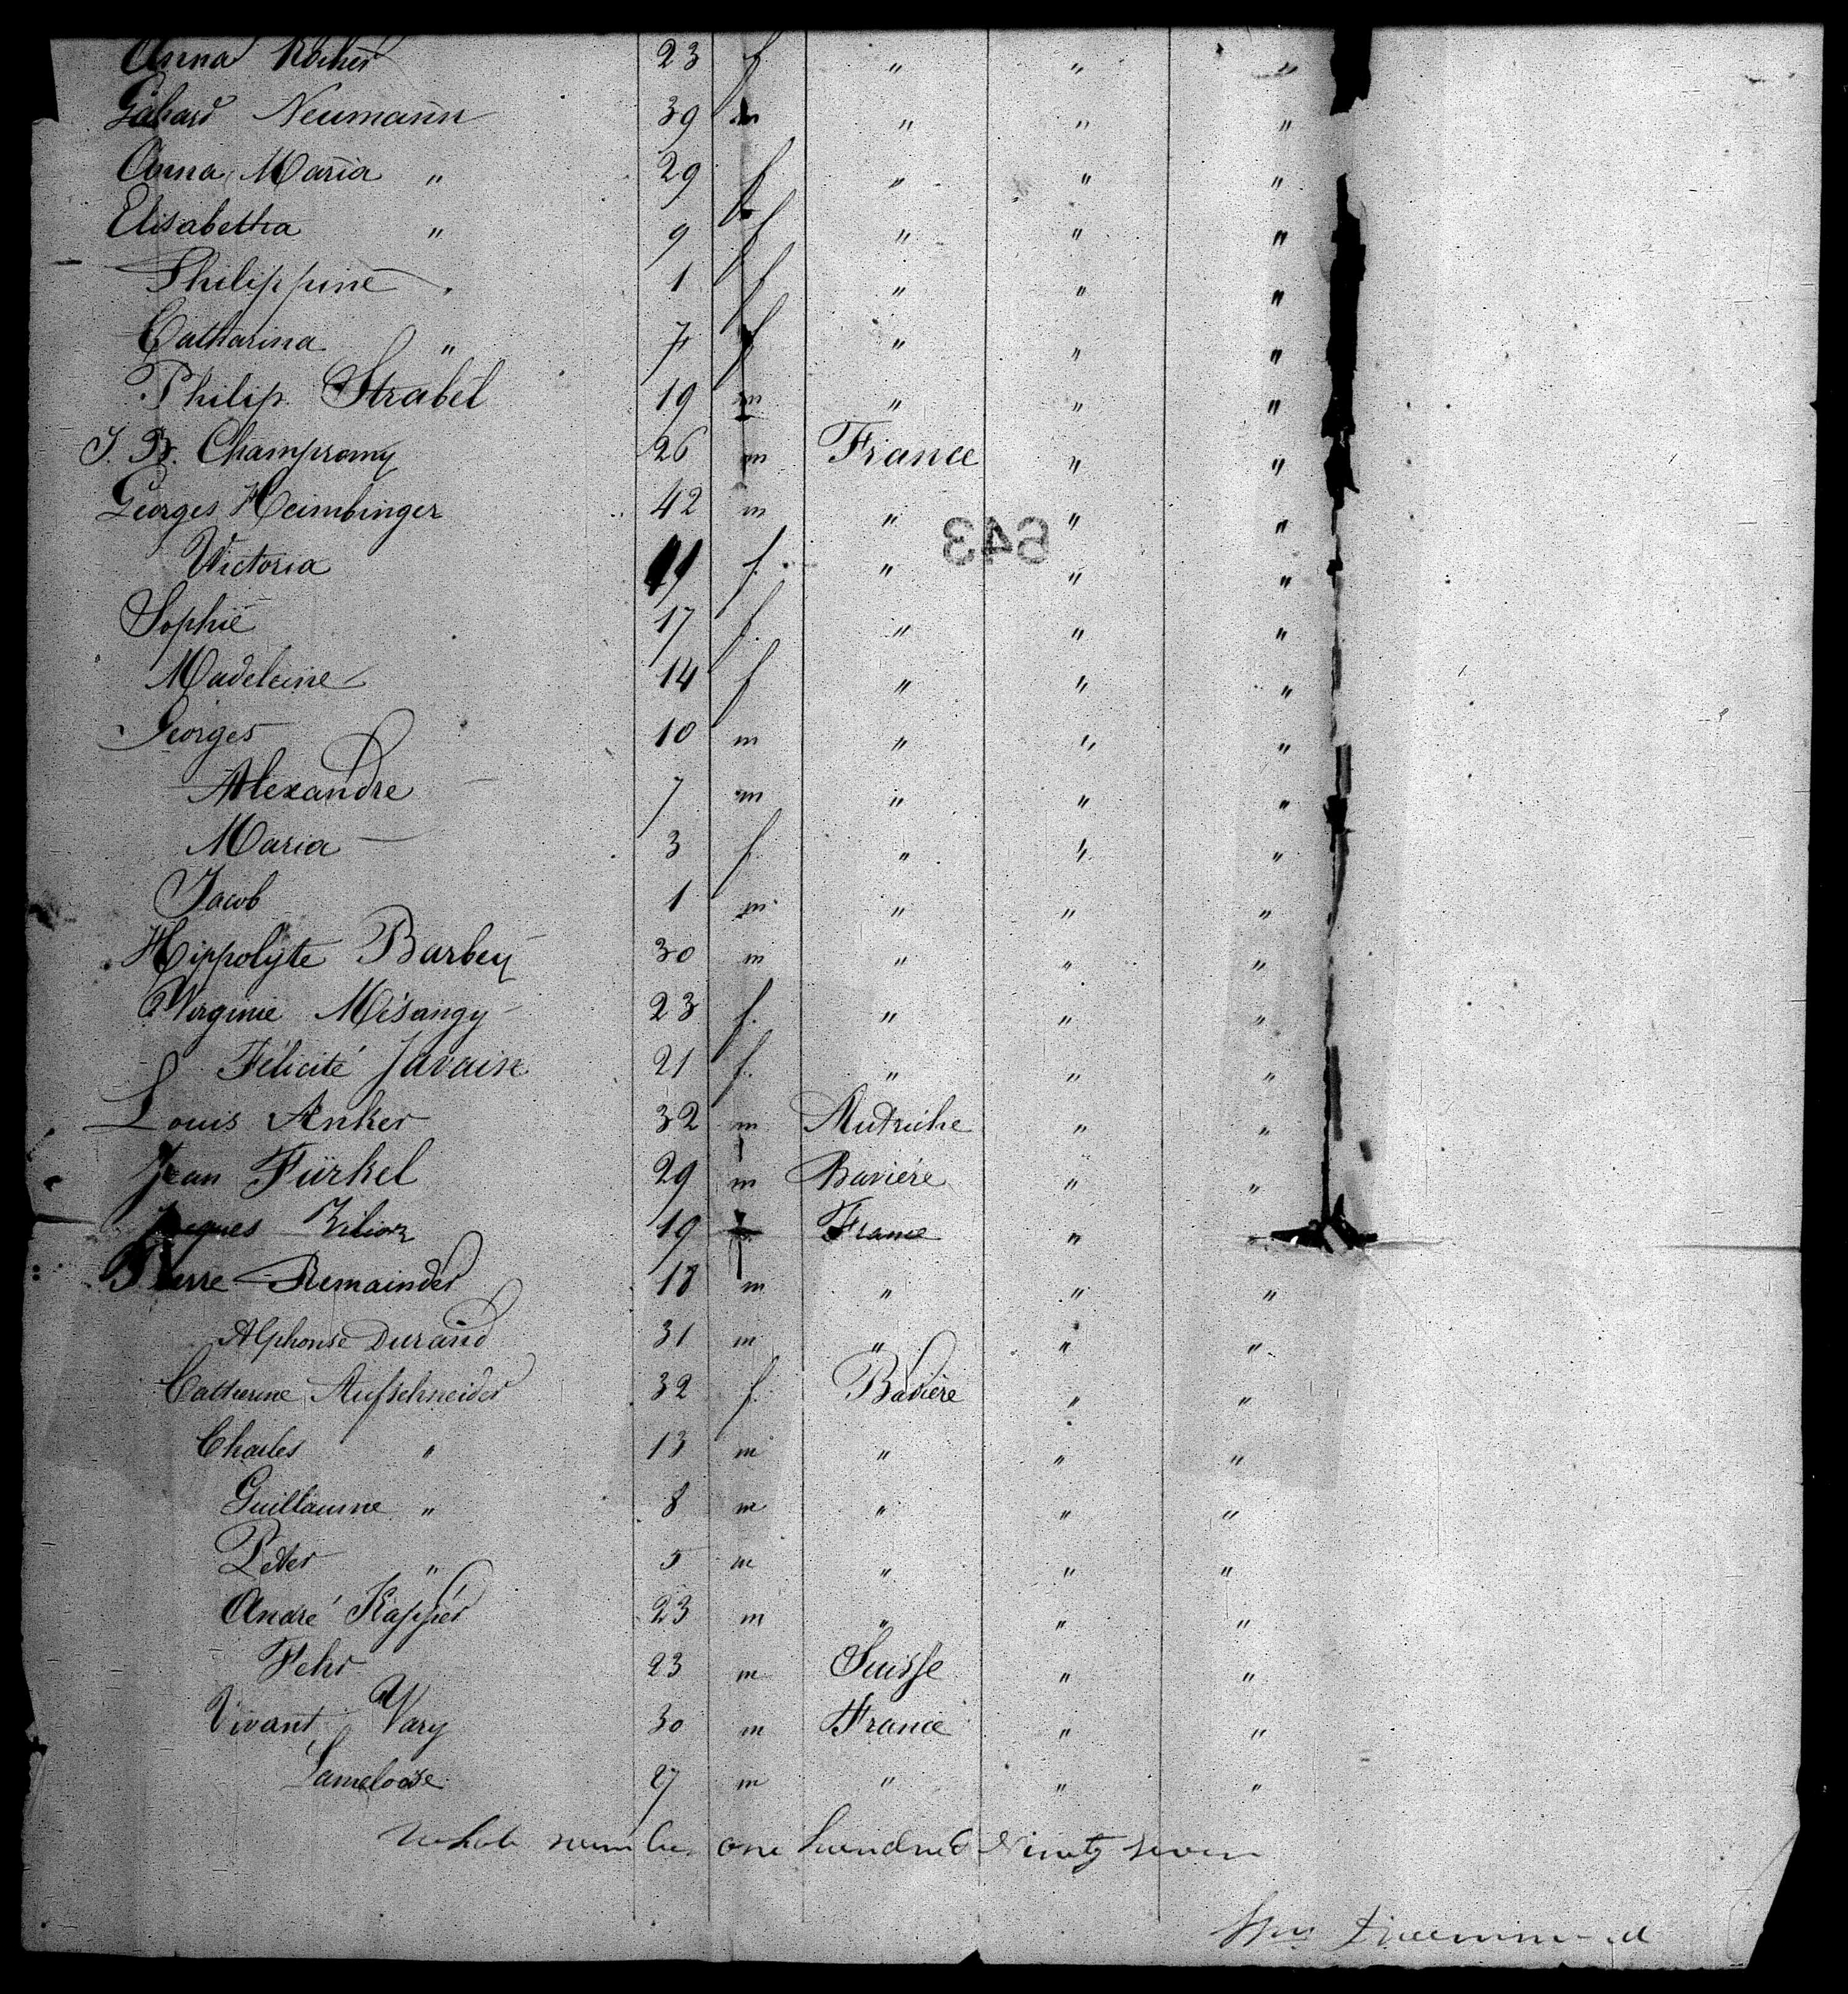 Anna Röcher 23 f " " "
Gahard Neumann 39 m " " "
Anna Maria " 29 f " " "
Elisabetha " 9 f " " "
Philippine " 1 f " " "
Catharina " 7 f " " "
Philip Strabel 19 m " " "
J. B. Champromy 26 m France " "
Georges Heimbinger 42 m " " "
Victoria f. " " "
Sophie 17 f. " " "
Madeleine 14 f " " "
Georges 10 m " " "
Alexandre 7 m " " "
Maria 3 f " " "
Jacob 1 m " " "
Hippolyte Barbey 30 m " " "
Virginie Mésangy 23 f. " " "
Félicité Javaise 21 f. " " "
Louis Anker 32 m Autriche " "
Jean Fürkel 29 m Bavière " "
Jaques 19 France "
Pierre Remainder 18 m " " "
Alphonse Durand 31 m " " "
Catherine Aufschneider 32 f. Bavière " "
Charles " 13 m " " "
Guillaume " 8 m " " "
Peter " 5 m " " "
André Kapper 23 m " " "
Fehr 23 m Suisse " "
Vivant Vary 30 m France " "
Lameloise 27 m " " "
643
Whole number one hundred Ninety seven